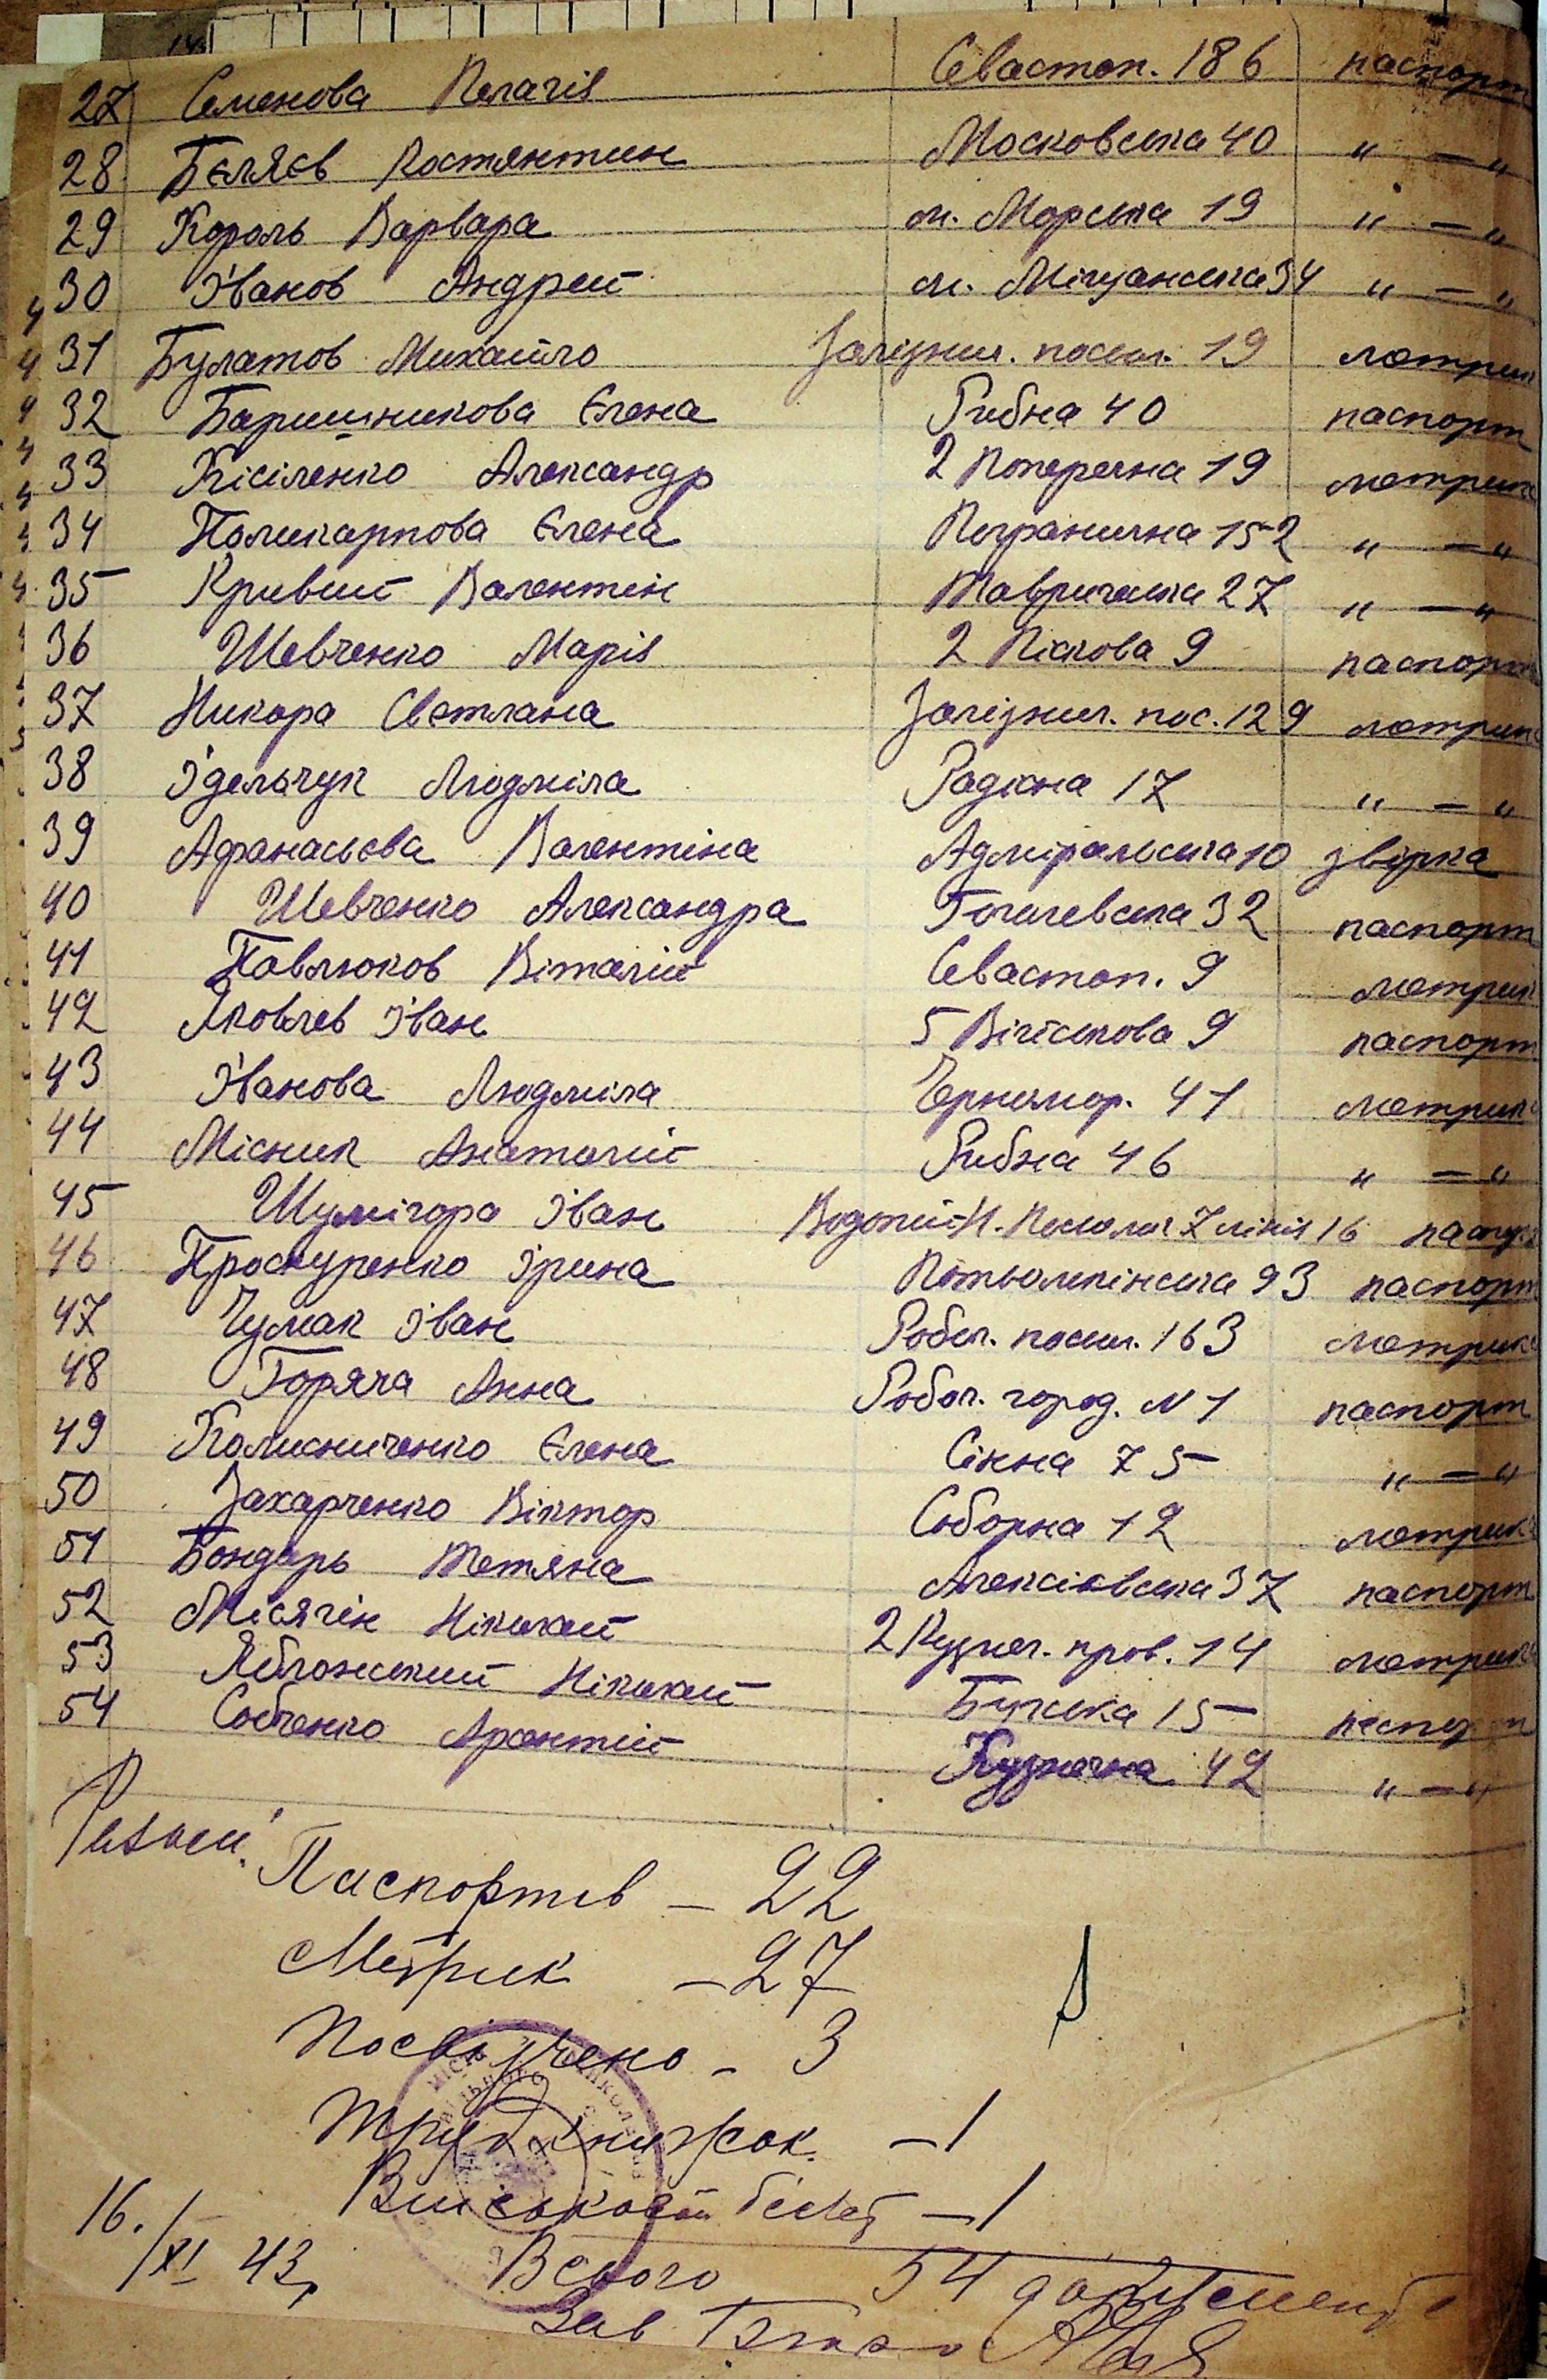 27 Семенова Пелагія Севастоп. 186 паспорт
28 Бєляєв Костянтин Московська 40 " — "
29 Король Варвара м. Морська 19 " — "
30 Іванов Андрей м. Міщанська 34 " — "
31 Булатов Михайло Залізнич. посел. 19 метрик
32 Баришникова Єлена Рибна 40 паспорт
33 Кісіленко Александр 2 Поперечна 19 метрика
34 Поликарпова Єлена Погранична 152 " — "
35 Кривий Валентін Тавричеська 27 " — "
36 Шевченко Марія 2 Піскова 9 паспорт
37 Никора Светлана Залізнич. пос. 129 метрика
38 Ідельчук Людміла Радісна 17 " — "
39 Афанасьєва Валентіна Адміральська 10 звірка
40 Шевченко Александра Гогилевська 32 паспорт
41 Павлюков Віталій Севастоп. 9 метрик
42 Яковлев Іван 5 Війскова 9 паспорт
43 Іванова Людміла Черномор. 41 метрика
44 Місник Анатолій Рибна 46 " — "
45 Шумігора Іван 7 лінія 16
46 Проскуренко Ірина Потьомкінська 93 паспорт
47 Чумак Іван Робіт. посел. 163 метрика
48 Горяча Анна Робоч. город. N 1 паспорт
49 Колисниченко Єлена Сінна 75 " — "
50 Захарченко Віктор Соборна 12 метрика
51 Бондарь Тетяна Алексієвська 37 паспорт
52 Місячін Ніколай 2 Кузнеч. пров. 14 метрика
53 Яблонський Ніколай Бузька 15 паспорт
54 Собченко Арентій Кузнечна 42 " — "
Разом:
Паспортів – 22
Метрик – 27
Посвідчено – 3
Труд книжок. – 1
Військовий білет – 1
16./XI 43. Всього 54 документ
Зав